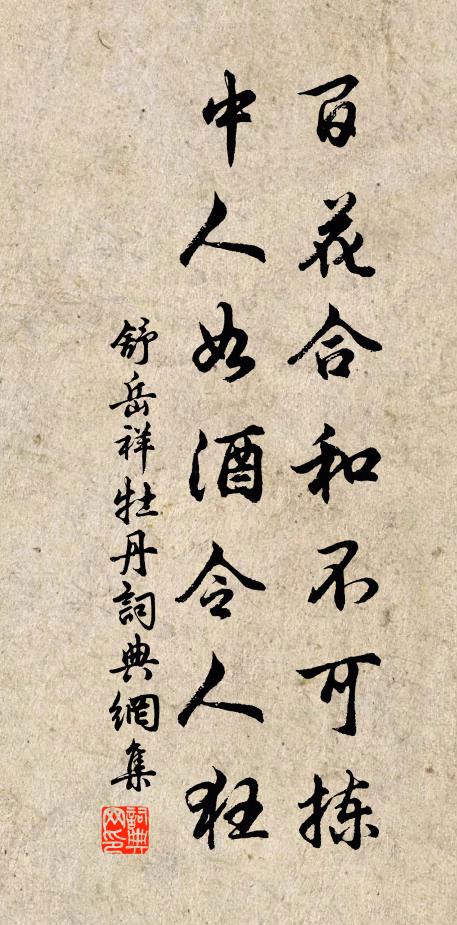 百花合和不可揀
中人如酒令人狂
舒岳祥牡丹詞典網集
詞典網印